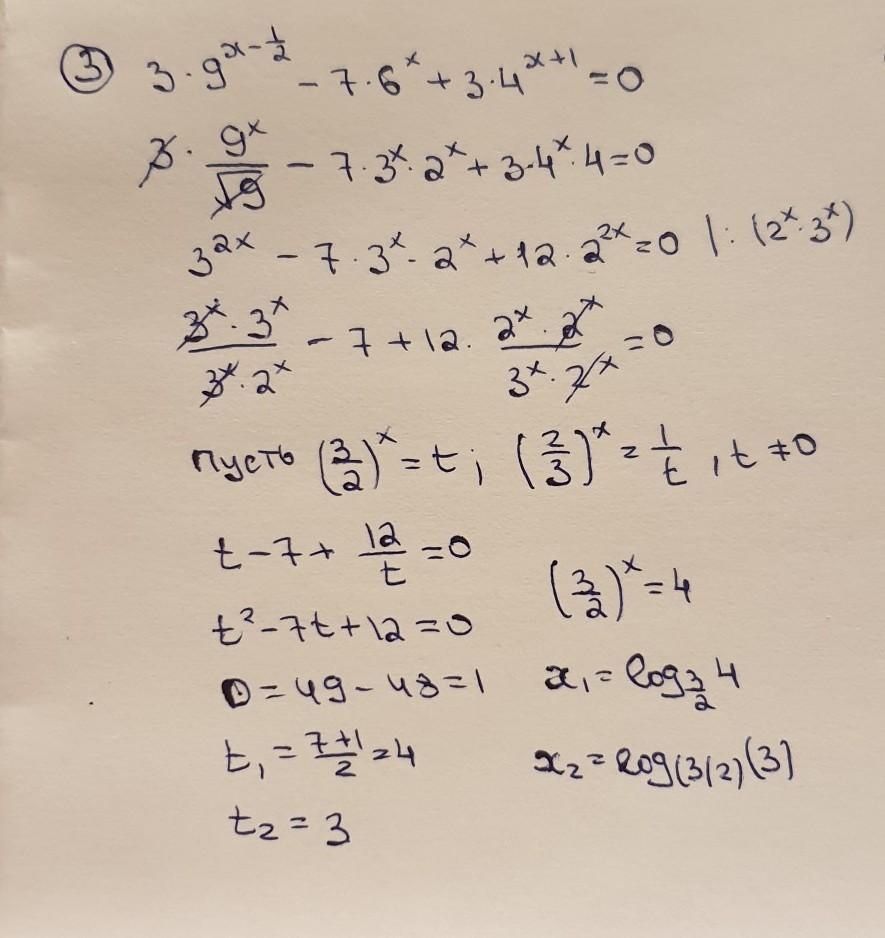 ③ 3·9^(x-1/2) - 7·6^x + 3·4^(x+1) = 0
3·9^x/√9 - 7·3^x·2^x + 3·4^x·4 = 0
3^(2x) - 7·3^x·2^x + 12·2^(2x) = 0 |: (2^x·3^x)
(3^x·3^x)/(3^x·2^x) - 7 + 12·(2^x·2^x)/(3^x·2^x) = 0
пусть (3/2)^x = t; (2/3)^x = 1/t, t ≠ 0
t - 7 + 12/t = 0
t² - 7t + 12 = 0
D = 49 - 48 = 1
t₁ = (7+1)/2 = 4
t₂ = 3
(3/2)^x = 4
x₁ = log_(3/2) 4
x₂ = log(3/2)(3)